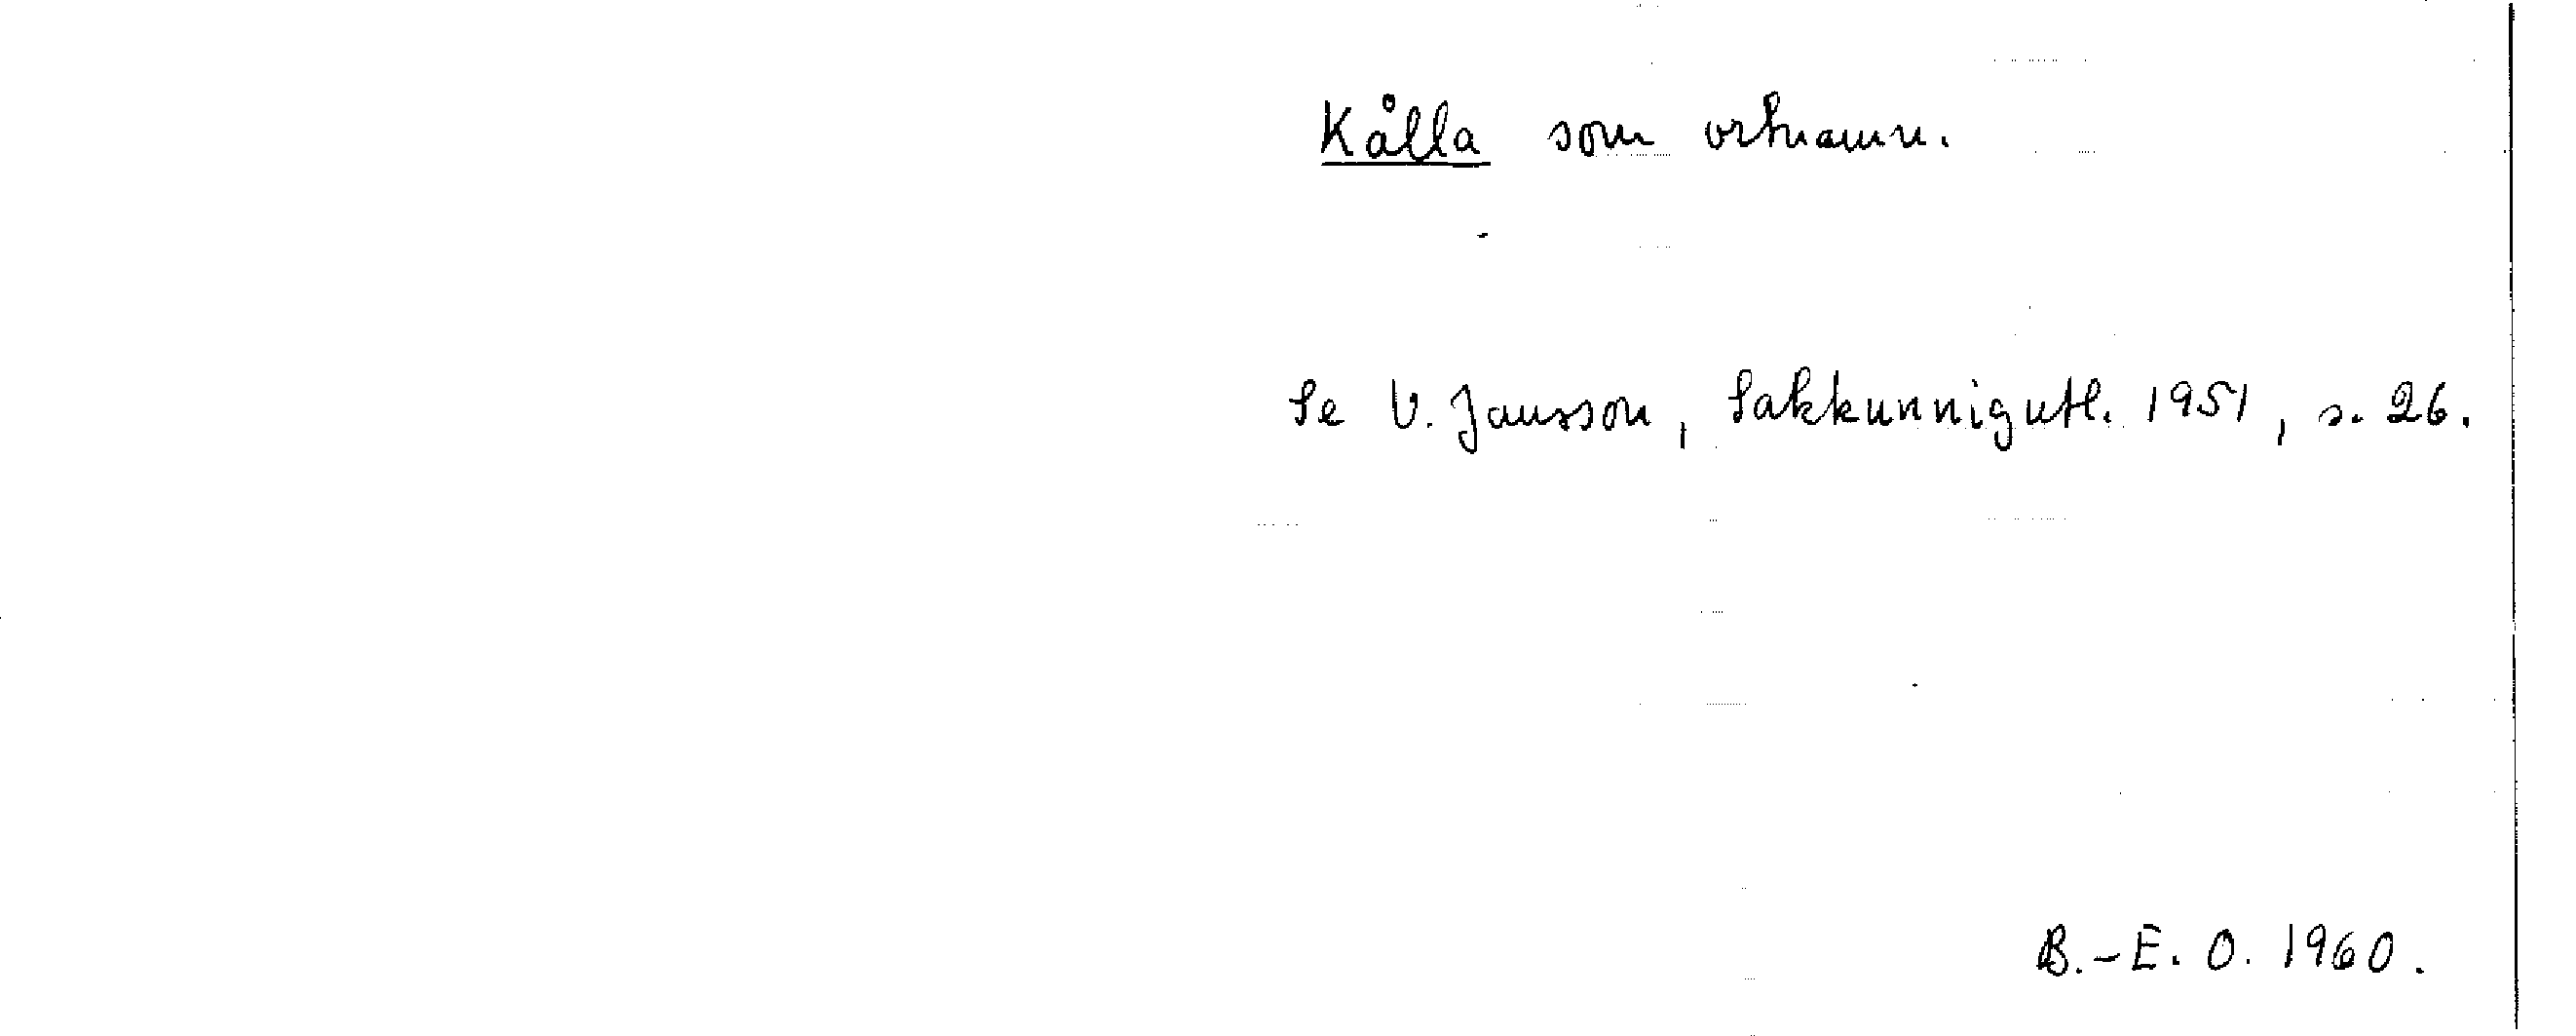 Kålla som ortnamn.
Se V. Jansson, Sakkunnigutl. 1951, s. 26.
B.-E. O. 1960.